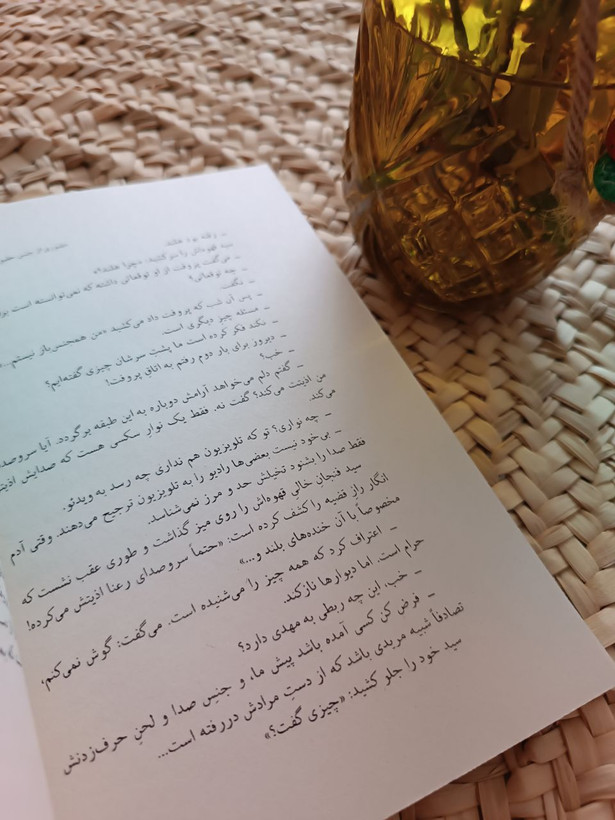 ـ رفته بود هتله.
سید قهوه‌اش را سر کشید: «چرا هتله؟»
ـ می‌گفت پروفت از او توقعاتی داشته که نمی‌توانسته است
ـ چه توقعاتی؟
ـ نگفت.
ـ پس آن شب که پروفت داد می‌کشید «من همجنس‌باز نیستم...»
ـ مسئله چیز دیگری است.
ـ نکند فکر کرده است ما پشت سرشان چیزی گفته‌ایم؟
ـ دیروز برای بار دوم رفتم به اتاق پروفت!
ـ خب؟
ـ گفتم دلم می‌خواهد آرامش دوباره به این طبقه برگردد. آیا
من اذیتت می‌کند؟ گفت نه. فقط یک نوار سکسی هست که صدایش
می‌کند.
ـ چه نواری؟ تو که تلویزیون هم نداری چه رسد به ویدئو.
ـ بی‌خود نیست بعضی‌ها رادیو را به تلویزیون ترجیح می‌دهند. وقتی آدم
فقط صدا را بشنود تخیلش حد و مرز نمی‌شناسد.
سید فنجان خالی قهوه‌اش را روی میز گذاشت و طوری عقب نشست که
انگار رازِ قضیه را کشف کرده است: «حتماً سروصدای رعنا اذیتش می‌کرده!
مخصوصاً با آن خنده‌های بلند و...»
ـ اعتراف کرد که همه چیز را می‌شنیده است. می‌گفت: گوش نمی‌کنم،
حرام است، اما دیوارها نازکند.
ـ خب، این چه ربطی به مهدی دارد؟
ـ فرض کن کسی آمده باشد پیش ما، و جنسِ صدا و لحنِ حرف‌زدنش
تصادفاً شبیه مریدی باشد که از دستِ مرادش دررفته است...
سید خود را جلو کشید: «چیزی گفت؟»